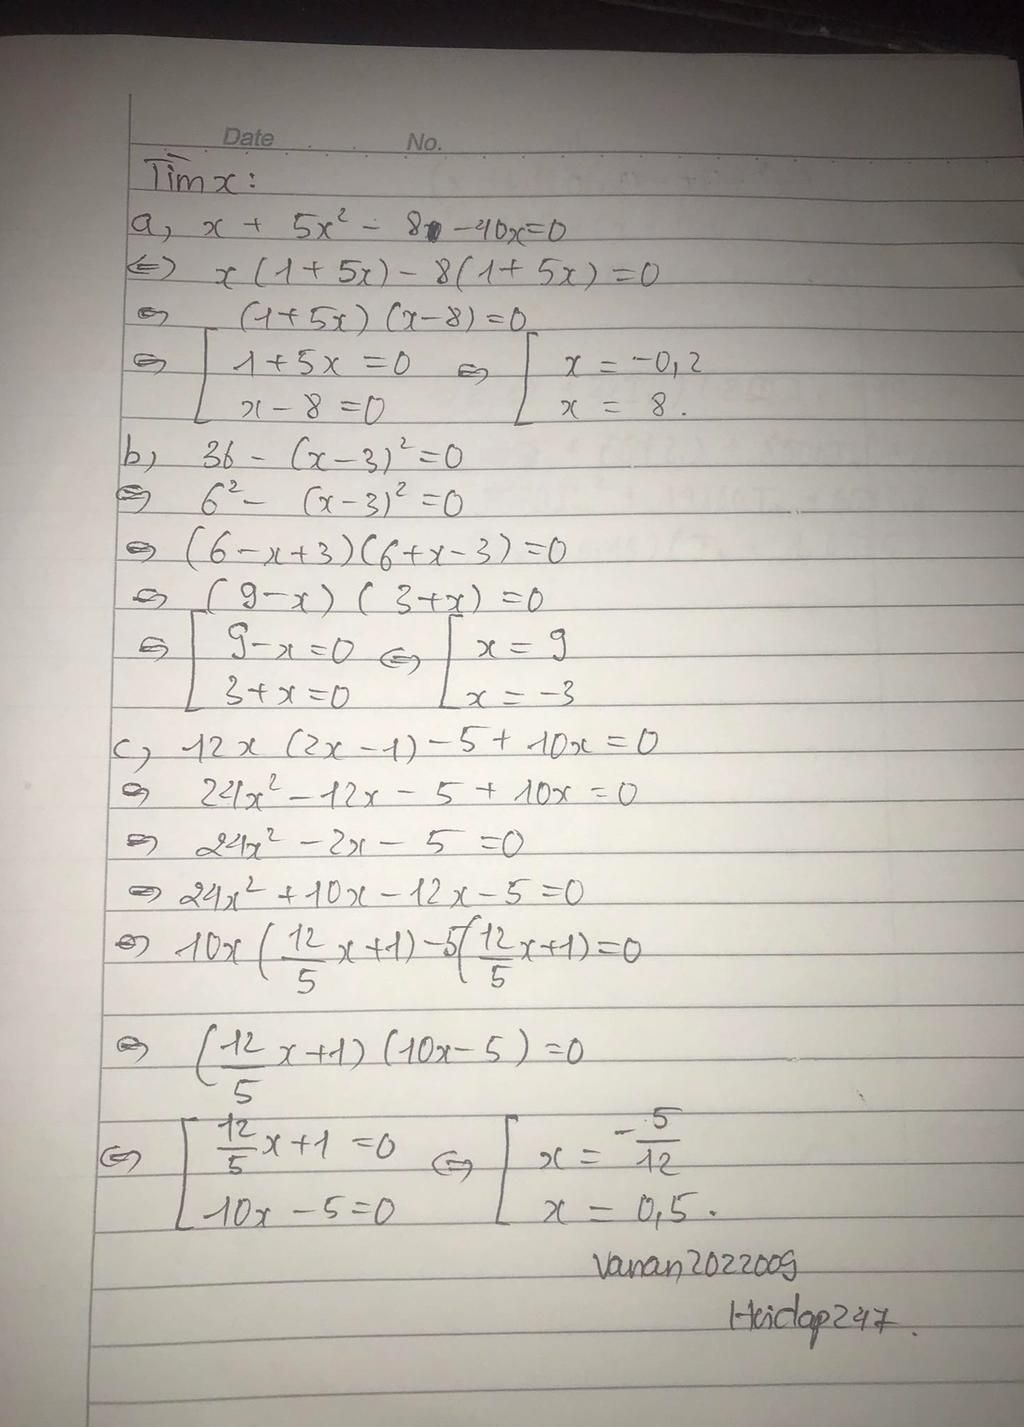 Date No.
Tìm x:
a, x + 5x² - 8 - 40x=0
⇔ x(1+5x) - 8(1+5x)=0
⇔ (1+5x)(x-8)=0
⇔ [ 1+5x=0 ⇔ [ x = -0,2
x-8=0 x = 8.
b, 36 - (x-3)²=0
⇔ 6² - (x-3)²=0
⇔ (6-x+3)(6+x-3)=0
⇔ (9-x)(3+x)=0
⇔ [ 9-x=0 ⇔ [ x = 9
3+x=0 x = -3
c, 12x(2x-1)-5+10x=0
⇔ 24x²-12x-5+10x=0
⇔ 24x²-2x-5=0
⇔ 24x²+10x-12x-5=0
⇔ 10x(12/5 x+1)-5(12/5 x+1)=0
⇔ (12/5 x+1)(10x-5)=0
⇔ [ 12/5 x+1=0 ⇔ [ x = -5/12
10x-5=0 x = 0,5.
Vanan2022009
Hoidap247.